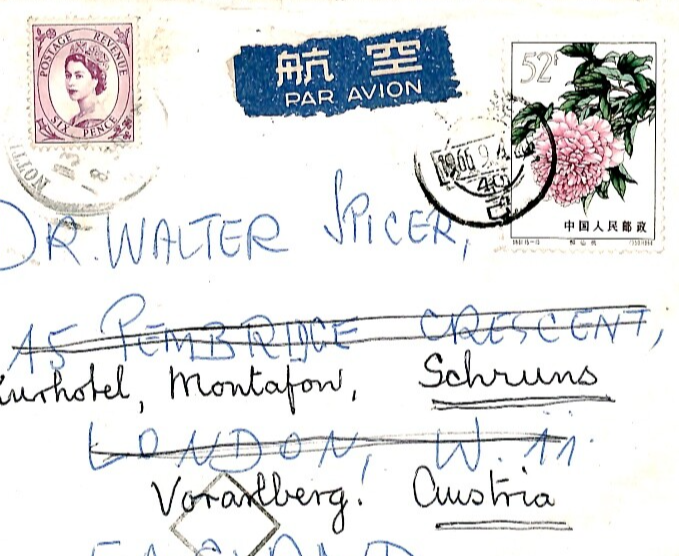 POSTAGE REVENUE
SIX PENCE
航空
PAR AVION
52
1966.9.
中国人民邮政
DR. WALTER SPICER,
15 PEMBRIDGE CRESCENT,
Kurhotel, Montafon, Schruns
LONDON, W. 11.
Vorarlberg! Austria
ENGLAND